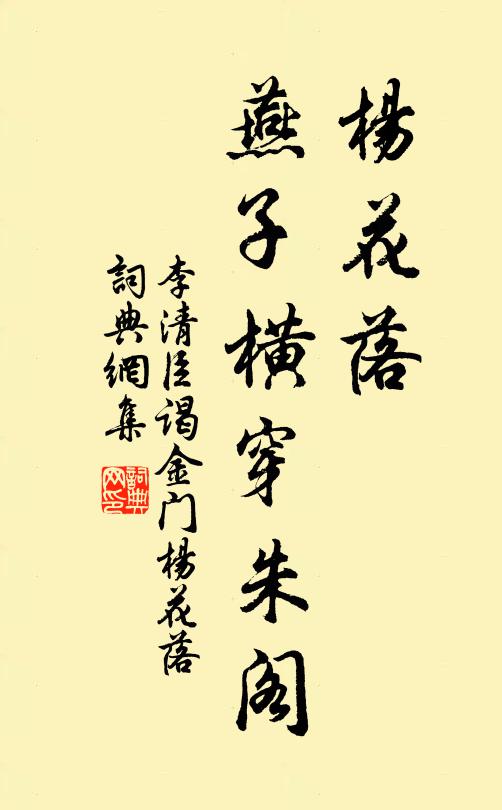 楊花落
燕子橫穿朱阁
李清臣谒金门楊花落
詞典網集
詞典
网印